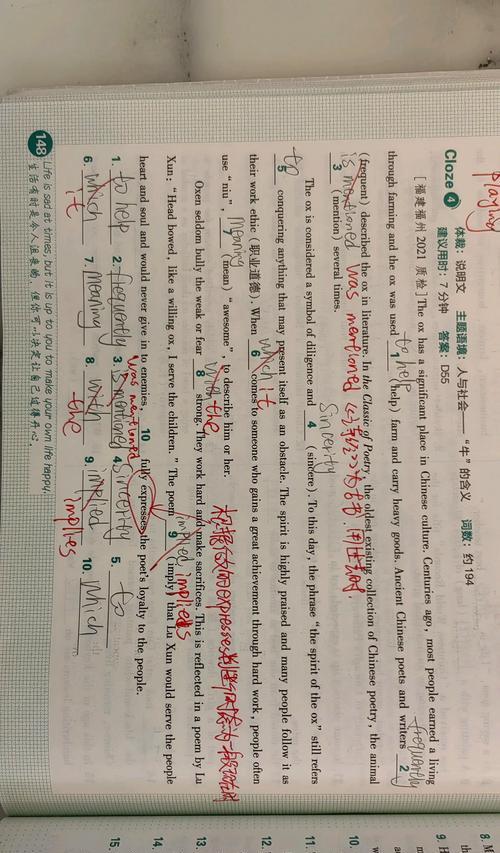 playing
Cloze 4 体裁：说明文 主题语境：人与社会——“牛”的含义 词数：约 194
建议用时：7 分钟 答案：D65
[福建福州 2021 质检] The ox has a significant place in Chinese culture. Centuries ago, most people earned a living
through farming and the ox was used 1 (help) farm and carry heavy goods. Ancient Chinese poets and writers 2
to help
frequently
(frequent) described the ox in literature. In the Classic of Poetry, the oldest existing collection of Chinese poetry, the animal
3 (mention) several times.
is mentioned was mentioned
The ox is considered a symbol of diligence and 4 (sincere). To this day, the phrase “the spirit of the ox” still refers
sincerity
to
5 conquering anything that may present itself as an obstacle. The spirit is highly praised and many people follow it as
their work ethic (职业道德). When 6 comes to someone who gains a great achievement through hard work, people often
which it
use “niu”, 7 (mean) “awesome” to describe him or her.
meaning
Oxen seldom bully the weak or fear 8 strong. They work hard and make sacrifices. This is reflected in a poem by Lu
with the
Xun: “Head bowed, like a willing ox, I serve the children.” The poem 9 (imply) that Lu Xun would serve the people
implied implies
heart and soul and would never give in to enemies, 10 fully expresses the poet's loyalty to the people.
1. to help 2. frequently 3. is mentioned 4. sincerity 5. to
was mentioned
6. which 7. meaning 8. with 9. implied 10. which
it the implies
148 Life is sad at times, but it is up to you to make your own life happy.
生活有时是令人沮丧的，但你可以决定让自己过得开心。
8.
9.
10.
11.
12.
13.
14.
15.